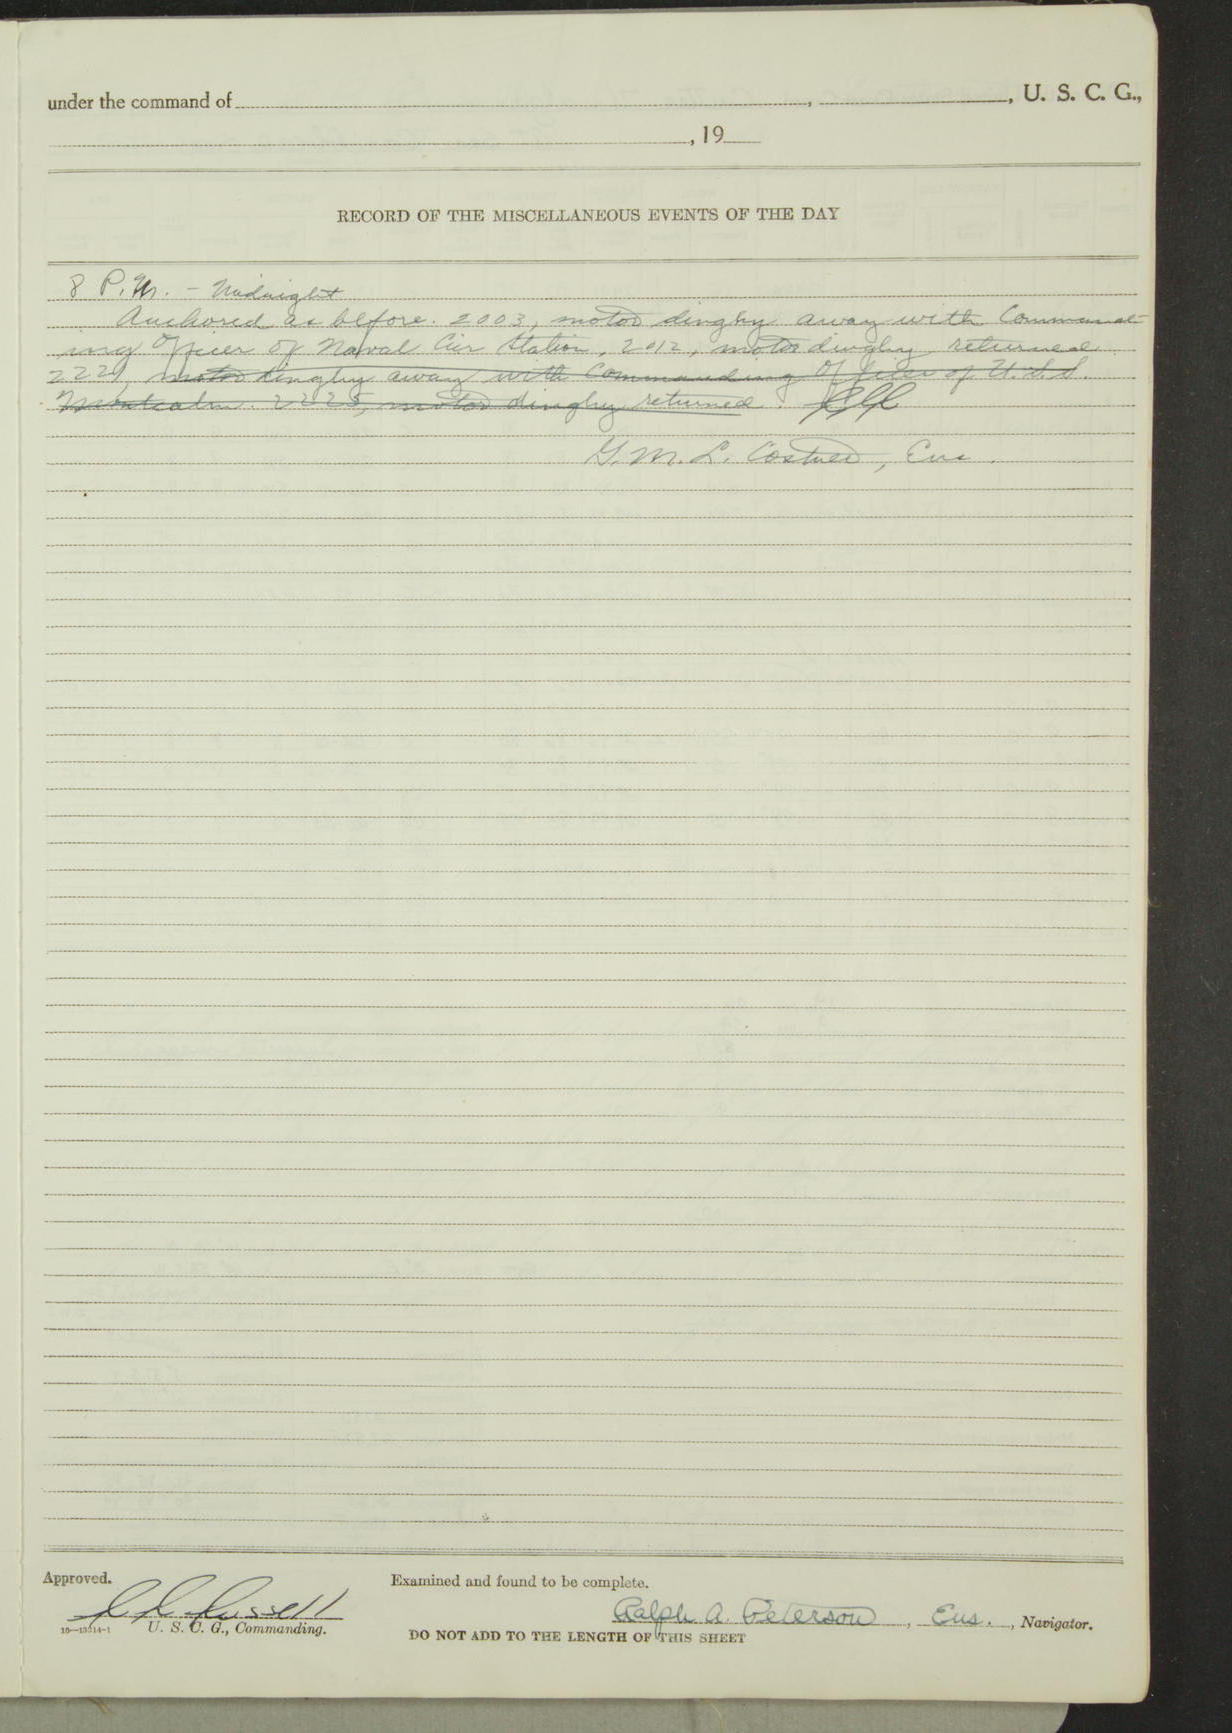 under the command of , , U. S. C. G.,
, 19
RECORD OF THE MISCELLANEOUS EVENTS OF THE DAY
8 P.M. - Midnight
Anchored as before. 2003, motor dinghy away with Command-
ing Officer of Naval Air Station, 2012, motor dinghy returned.
2221, motor dinghy away with Commanding Officer of U.S.S.
Montcalm. 2225, motor dinghy returned.
G. M. L. Costner, Ens.
Approved.
Examined and found to be complete.
Russell
Ralph A. Peterson, Ens., Navigator.
U. S. C. G., Commanding.
DO NOT ADD TO THE LENGTH OF THIS SHEET